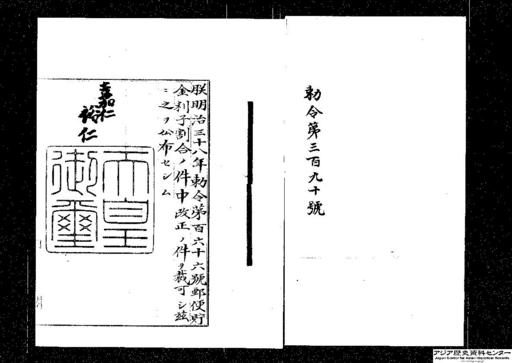 勅令第三百九十號
朕明治三十八年勅令第百六十六號郵便貯
金利子割合ノ件中改正ノ件ヲ裁可シ茲
ニ之ヲ公布セシム
嘉仁
裕仁
天皇
御璽
アジア歴史資料センター
Japan Center for Asian Historical Records